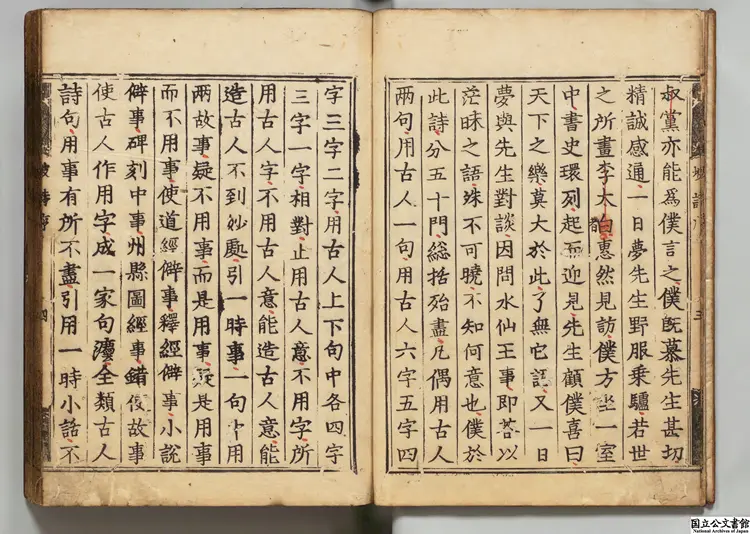 叔黨亦能爲僕言之僕旣慕先生甚切
精誠感通一日夢先生野服乘驢若世
之所畫李太白惠然見訪僕方坐一室
中書史環列起而迎見先生顧僕喜曰
天下之樂莫大於此了無它語又一日
夢與先生對談因問水仙王事即荅以
茫昧之語殊不可曉不知何意也僕於
此詩分五十門総括殆盡凡偶用古人
兩句用古人一句用古人六字五字四
字三字二字用古人上下句中各四字
三字一字相對止用古人意不用字所
用古人字不用古人意能造古人意能
造古人不到妙處引一時事一句中用
兩故事疑不用事而是用事疑是用事
而不用事使道經僻事釋經僻事小說
僻事碑刻中事州縣圖經事錯使故事
使古人作用字成一家句瀍全類古人
詩句用事有所不盡引用一時小話不
坡詩序
三
坡詩序
四
国立公文書館
National Archives of Japan